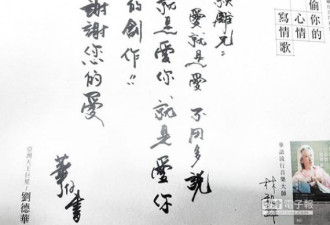 偷你的
心情
寫情歌
華語流行音樂大師
雄兄:
愛就是愛 不用多說
就是愛你 就是愛你
的創作!!
謝謝您的愛
華仔書
劉德華
電子報